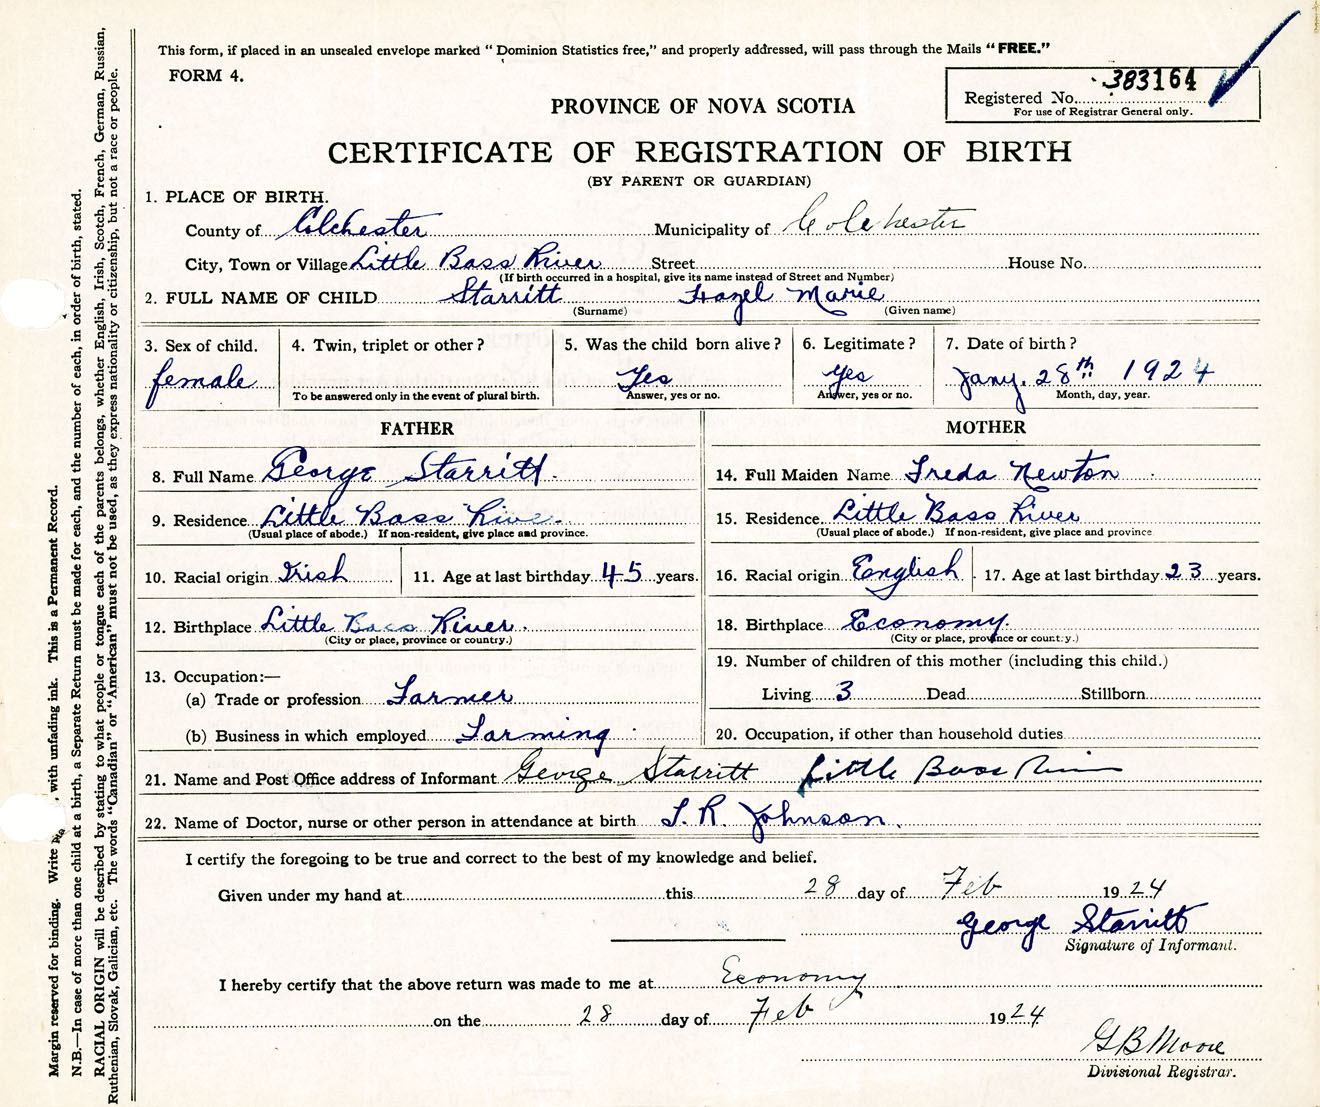 This form, if placed in an unsealed envelope marked “Dominion Statistics free,” and properly addressed, will pass through the Mails “FREE.”
FORM 4.
Registered No. 383164
For use of Registrar General only.
PROVINCE OF NOVA SCOTIA
CERTIFICATE OF REGISTRATION OF BIRTH
(BY PARENT OR GUARDIAN)
1. PLACE OF BIRTH.
County of Colchester Municipality of Colchester
City, Town or Village Little Bass River Street House No.
(If birth occurred in a hospital, give its name instead of Street and Number)
2. FULL NAME OF CHILD Starritt Hazel Marie
(Surname) (Given name)
3. Sex of child. 4. Twin, triplet or other? 5. Was the child born alive? 6. Legitimate? 7. Date of birth?
female Yes Yes Jany. 28th 1924
To be answered only in the event of plural birth. Answer, yes or no. Answer, yes or no. Month, day, year.
FATHER
8. Full Name George Starritt.
9. Residence Little Bass River
(Usual place of abode.) If non-resident, give place and province.
10. Racial origin Irish 11. Age at last birthday 45 years.
12. Birthplace Little Bass River.
(City or place, province or country.)
13. Occupation:—
(a) Trade or profession Farmer
(b) Business in which employed Farming
MOTHER
14. Full Maiden Name Freda Newton
15. Residence Little Bass River
(Usual place of abode.) If non-resident, give place and province
16. Racial origin English 17. Age at last birthday 23 years.
18. Birthplace Economy.
(City or place, province or country.)
19. Number of children of this mother (including this child.)
Living 3 Dead Stillborn
20. Occupation, if other than household duties
21. Name and Post Office address of Informant George Starritt Little Bass River
22. Name of Doctor, nurse or other person in attendance at birth T. R. Johnson.
I certify the foregoing to be true and correct to the best of my knowledge and belief.
Given under my hand at this 28 day of Feb 1924
George Starritt
Signature of Informant.
I hereby certify that the above return was made to me at Economy
on the 28 day of Feb 1924
G B Moore
Divisional Registrar.
Margin reserved for binding. Write , with unfading ink. This is a Permanent Record.
N.B.—In case of more than one child at a birth, a Separate Return must be made for each, and the number of each, in order of birth, stated.
RACIAL ORIGIN will be described by stating to what people or tongue each of the parents belongs, whether English, Irish, Scotch, French, German, Russian,
Ruthenian, Slovak, Galician, etc. The words “Canadian” or “American” must not be used, as they express nationality or citizenship, but not a race or people.